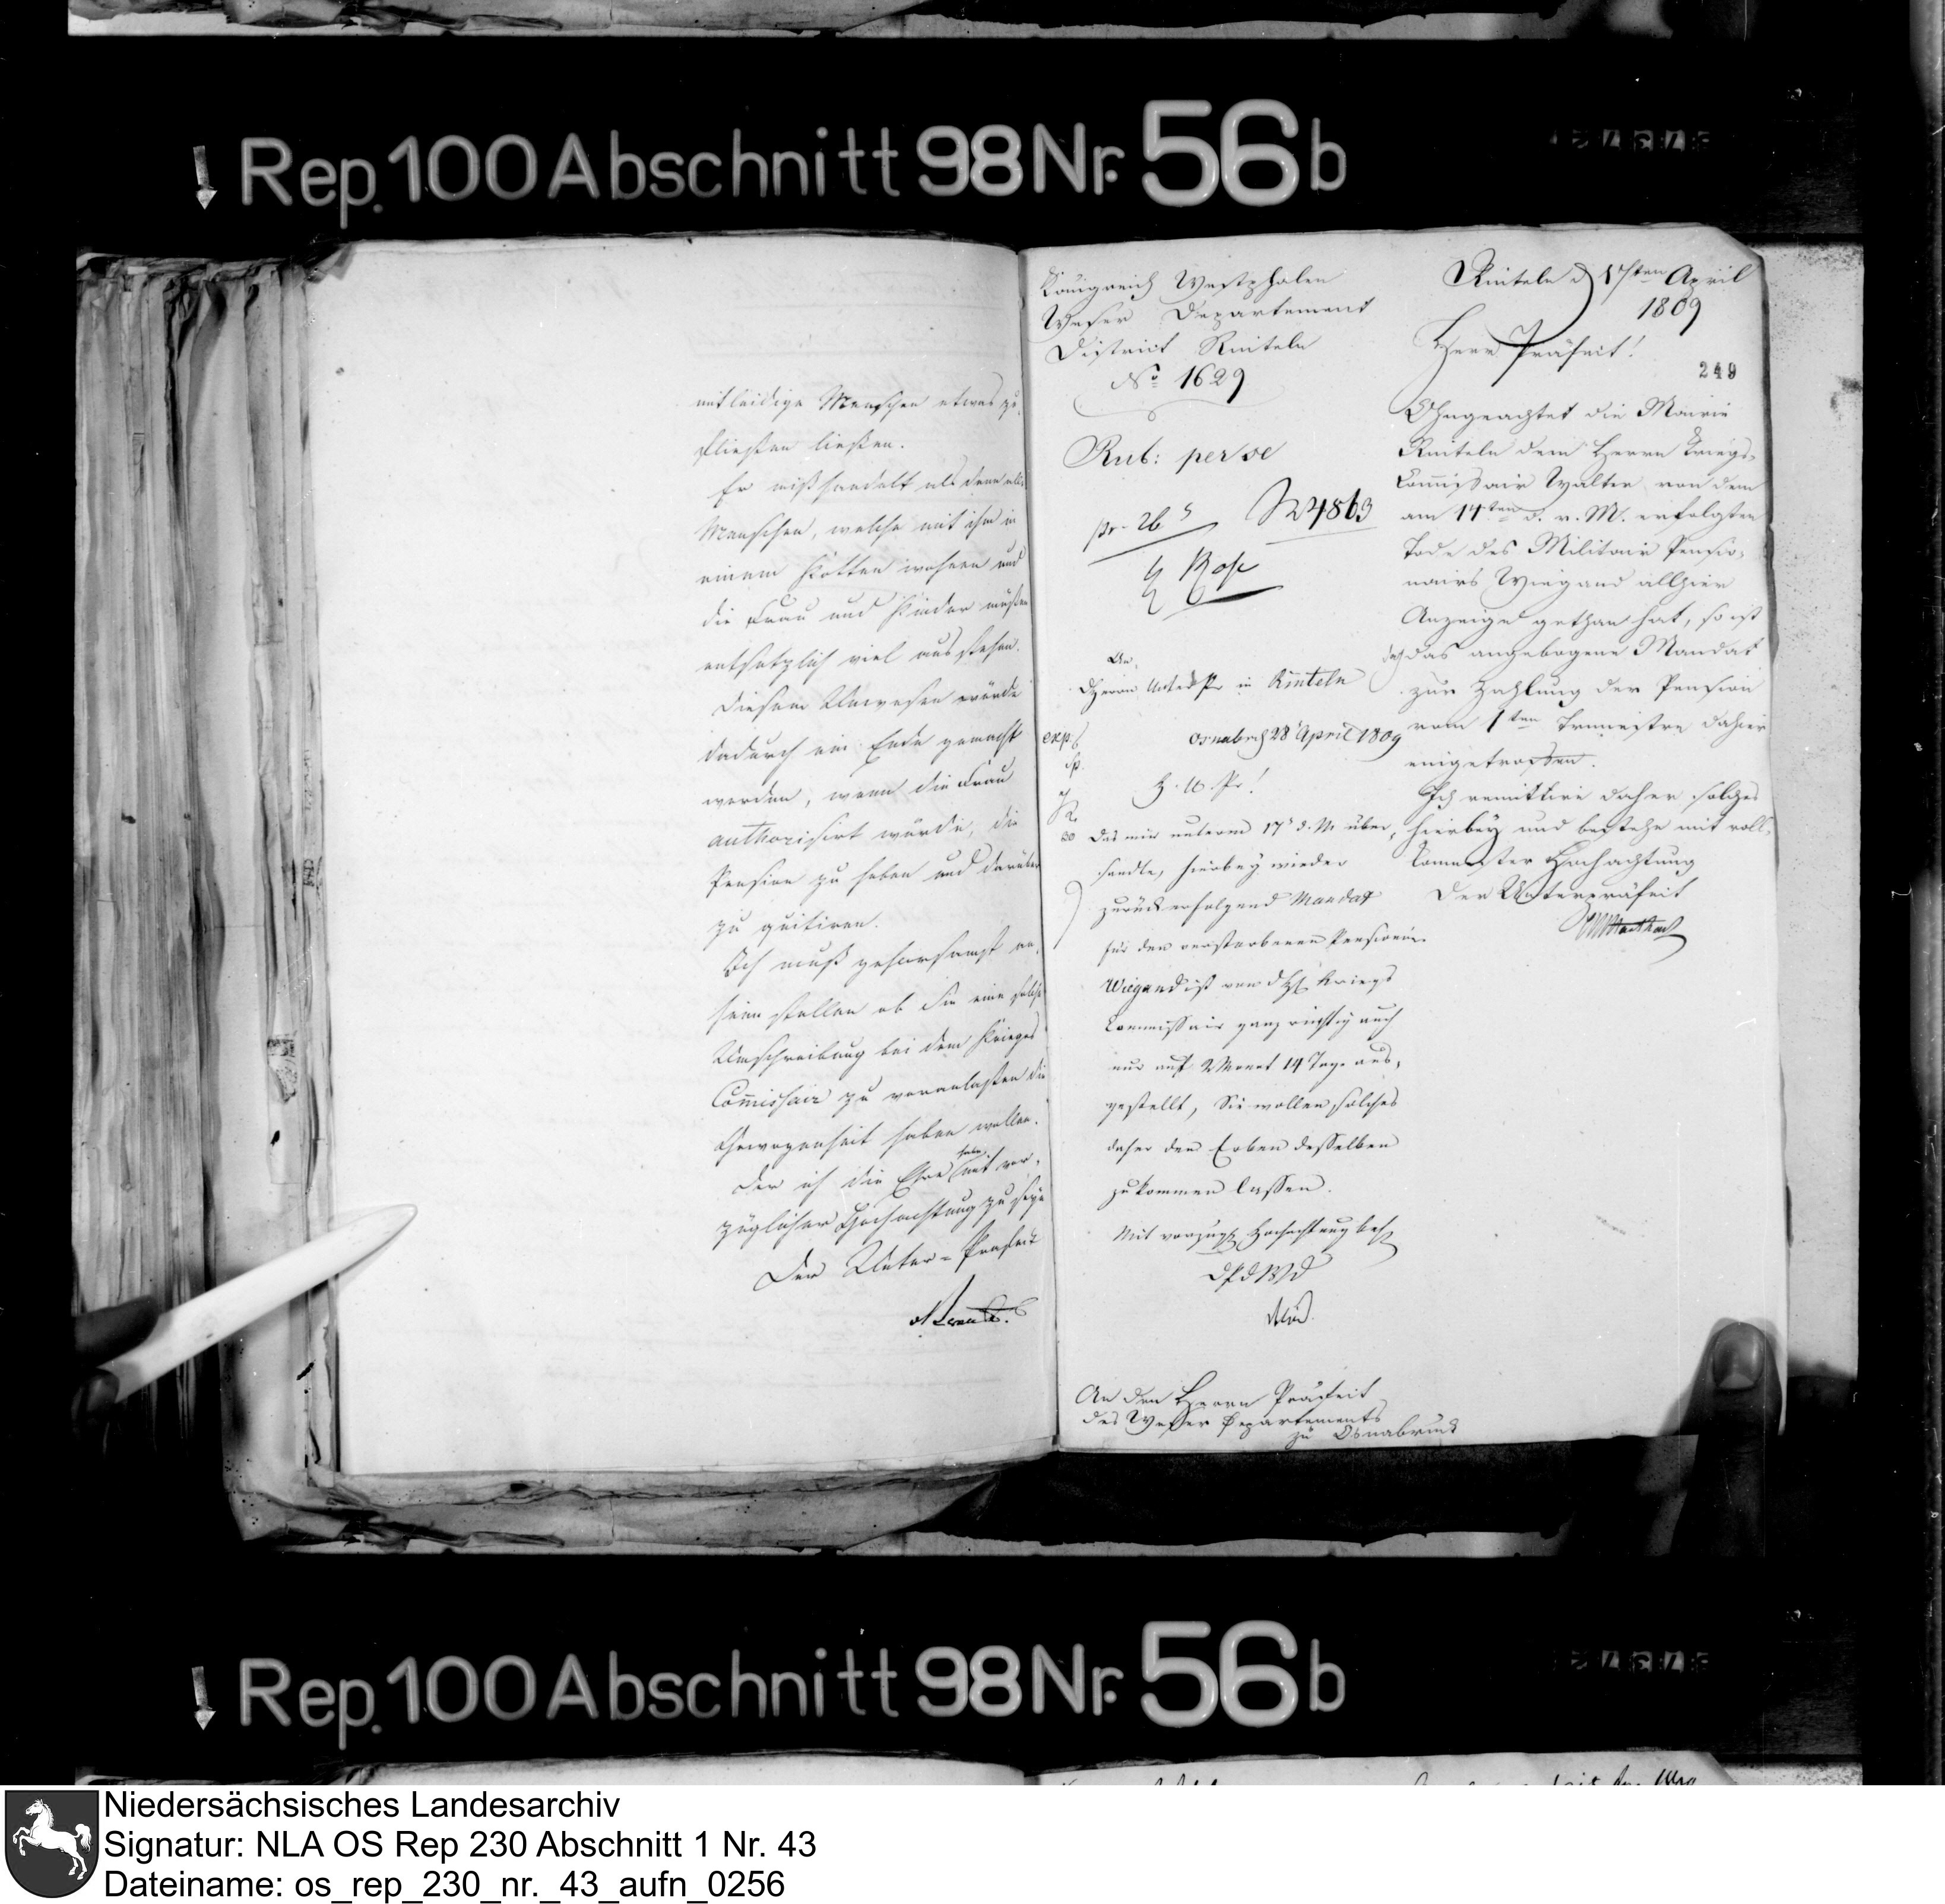 Rep. 100 Abschnitt 98 Nr. 56 b
mitleidige Menschen etwas zu,
fließen ließen.
Er mißhandelt als dann alle
Menschen, welche mit ihm in
einem Kotten wohnen und
die Frau und Kinder müßen
entsetzlich viel ausstehen.
Diesem Unwesen würde
dadurch ein Ende gemacht
werden, wenn die Frau
authorisirt würde, die
Pension zu heben und darüber
zu quitiren.
Ich muß gehorsamst an,
heim stellen ob Sie eine solche
Umschreibung bei dem Krieges
Commissair zu veranlaßen die
Gewogenheit haben wollen.
Der ich die Ehre habe mit vor,
züglicher Hochachtung zu seyn
Der Unter-Praefect
Königreich Westphalen
Weser Departement
District Rinteln
No 1629
Rub: per se
pr. 26
4863
An
Herrn Unter Pr in Rinteln
exp.
Osnabrck 28 April 1809
H. U. Pr!
Das mir unterm 17 d. M über,
sandte, hierbey wieder
zurückerfolgend Mandat
für den verstorbenen Pensionair
Wiegand ist von d H Kriegs
Commissair ganz richtig auch
nur auf 2 Monat 14 Tage aus,
gestellt, Sie wollen solches
daher den Erben desselben
zukommen lassen.
Mit vorzügl Hochachtung
D P d W D
An den Herrn Präfect
des Weser Departements
zu Osnabruck
Rinteln d 17ten April
1809
Herr Präfect!
249
Ohngeachtet die Mairie
Rinteln dem Herrn Kriegs-
Commissair Walter von dem
am 14ten d. v. M. erfolgten
Tode des Militair Pensio-
nairs Wiegand allhier
Anzeige gethan hat, so ist
das angebogene Mandat
zur Zahlung der Pension
vom 1ten Trimestre dahier
eingetroffen.
Ich remittire daher solches
hierbey und bestehe mit voll-
kommenster Hochachtung
Der Unterpräfect
Rep. 100 Abschnitt 98 Nr. 56 b
Niedersächsisches Landesarchiv
Signatur: NLA OS Rep 230 Abschnitt 1 Nr. 43
Dateiname: os_rep_230_nr._43_aufn_0256